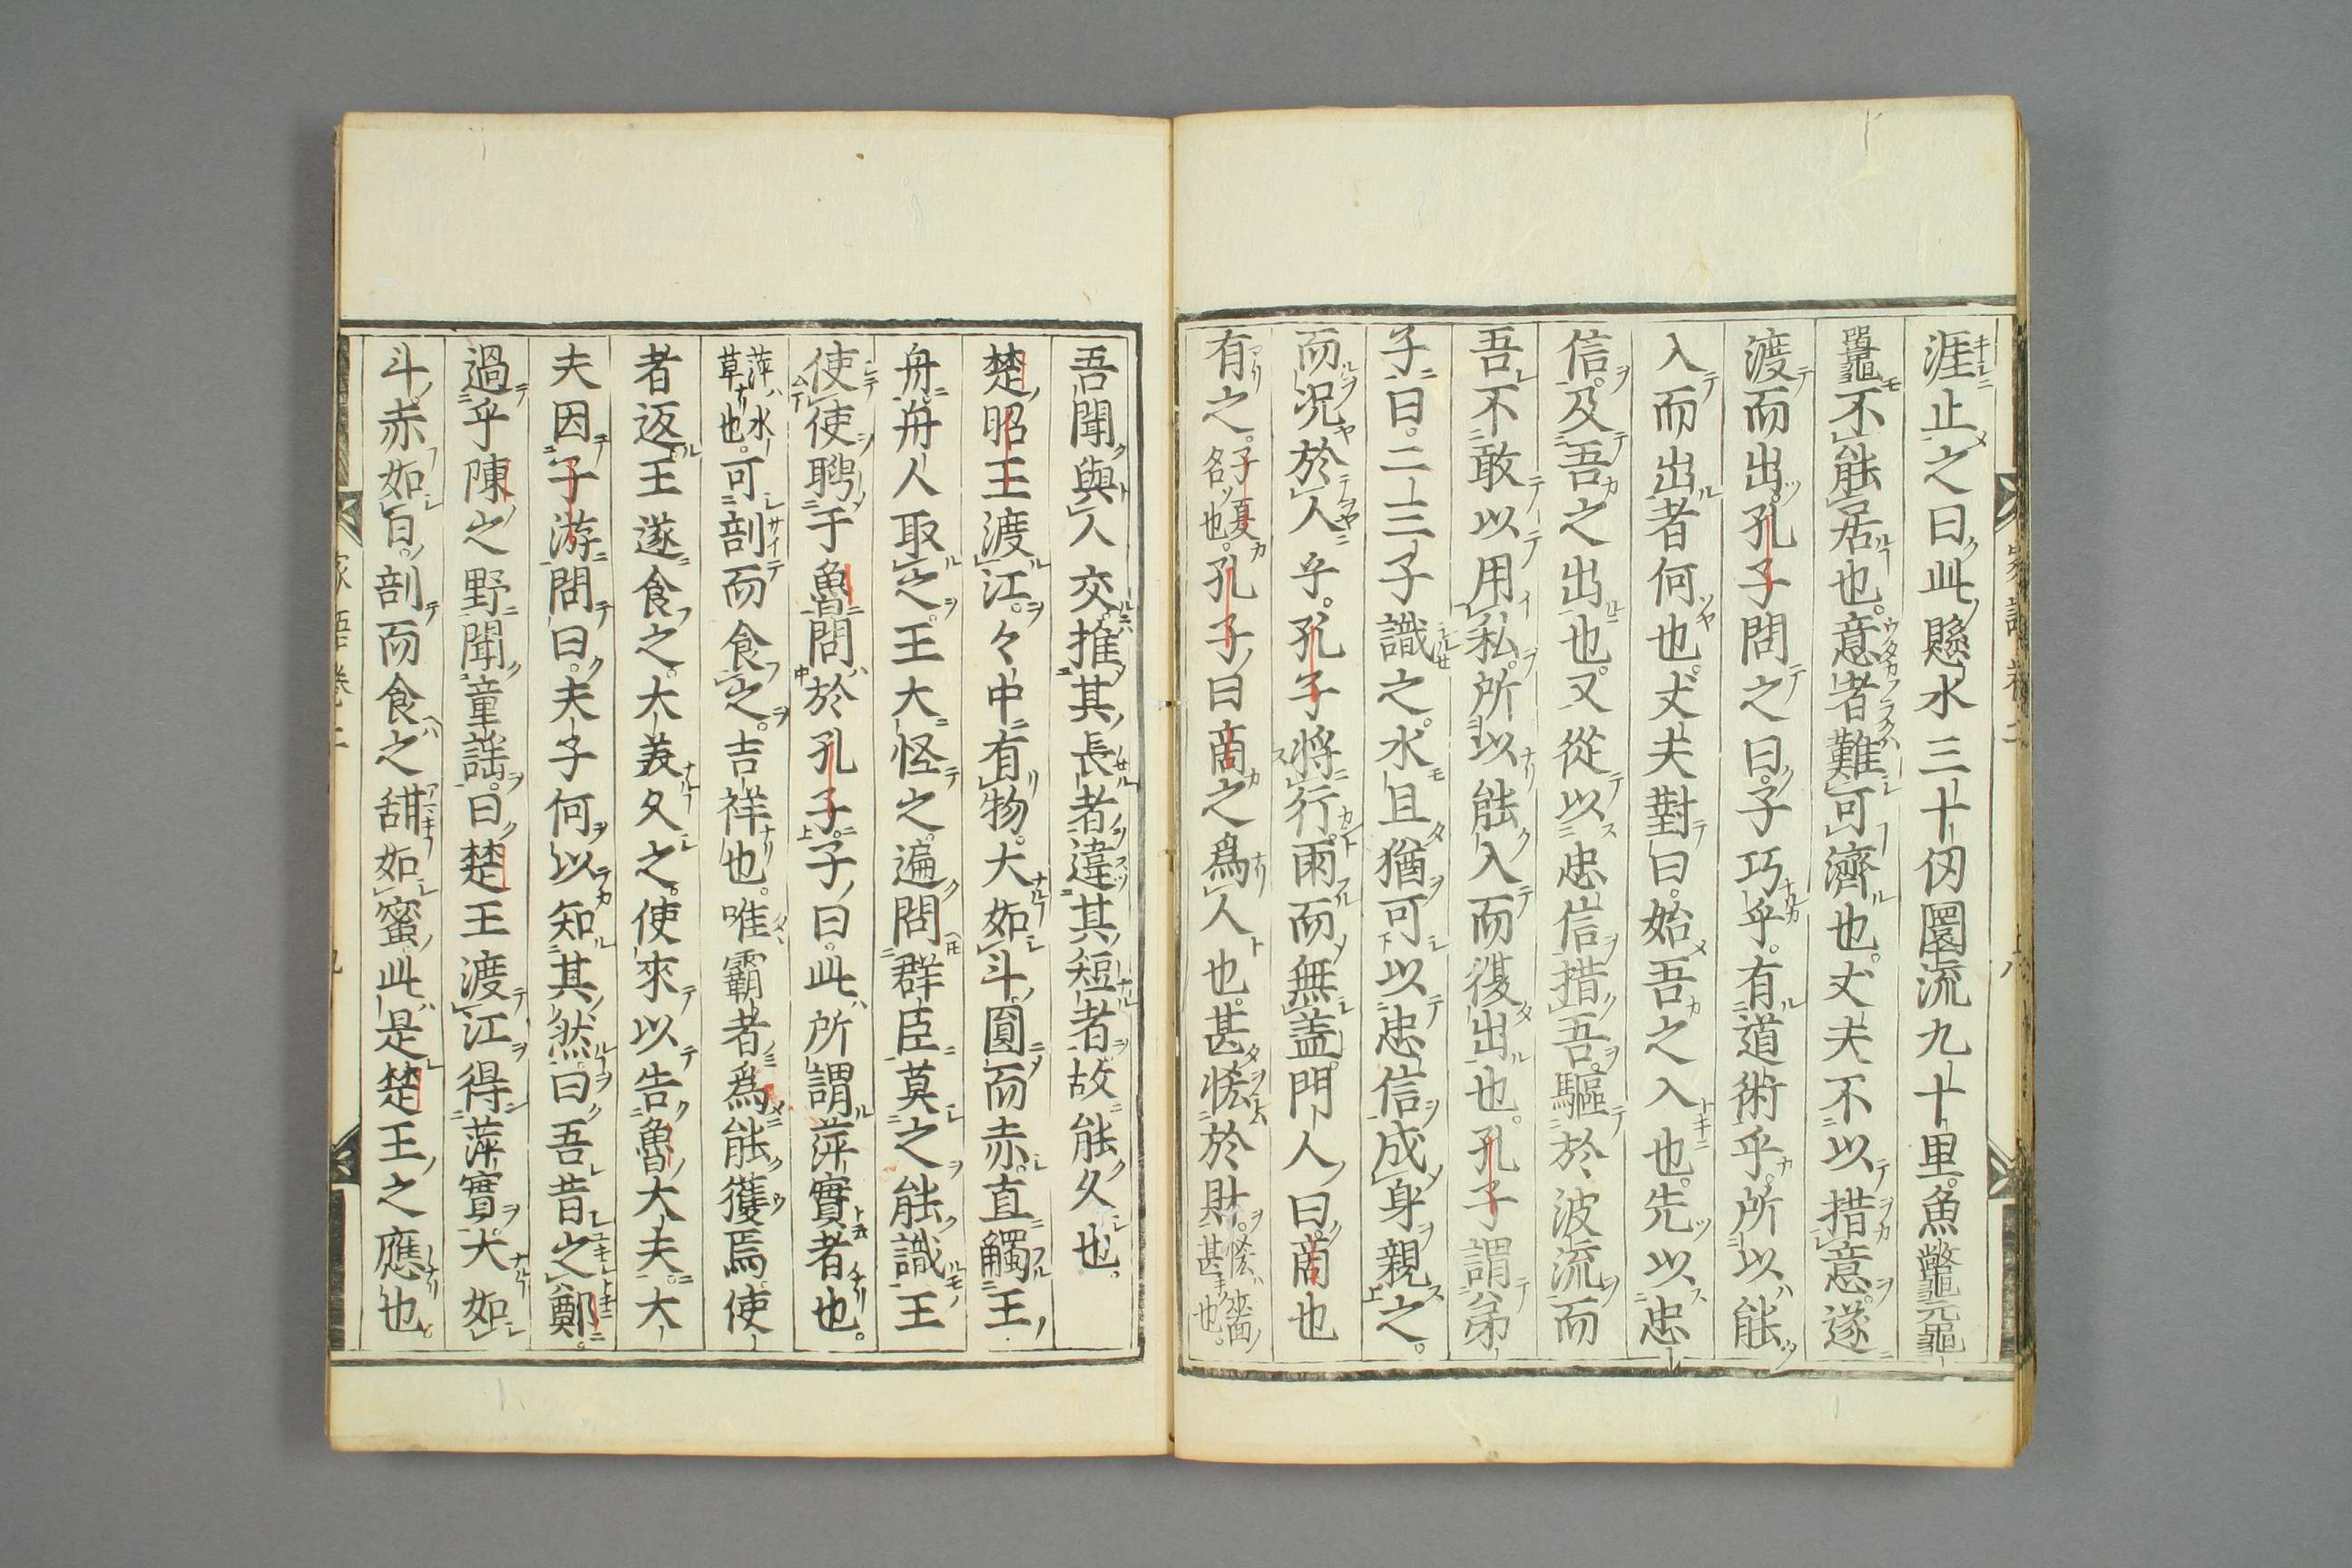 涯止之曰此懸水三十仞圜流九十里魚鱉黿
鼉不能居也意者難可濟也丈夫不以措意遂
渡而出孔子問之曰子巧乎有道術乎所以能
入而出者何也丈夫對曰始吾之入也先以忠
信及吾之出也又從以忠信措吾驅於波流而
吾不敢以用私所以能入而復出也孔子謂弟
子曰二三子識之水且猶可以忠信成身親之
而况於人乎孔子將行雨而無盖門人曰商也
有之子夏名也孔子曰商之爲人也甚恡於財恡嗇甚也
吾聞與人交推其長者違其短者故能久也
楚昭王渡江々中有物大如斗圓而赤直觸王
舟舟人取之王大怪之遍問群臣莫之能識王
使使聘于魯問於孔子子曰此所謂萍實者也
萍水草也可剖而食之吉祥也唯霸者爲能獲焉使
者返王遂食之大美久之使來以告魯大夫大
夫因子游問曰夫子何以知其然曰吾昔之鄭
過乎陳之野聞童謡曰楚王渡江得萍實大如
斗赤如日剖而食之甜如蜜此是楚王之應也